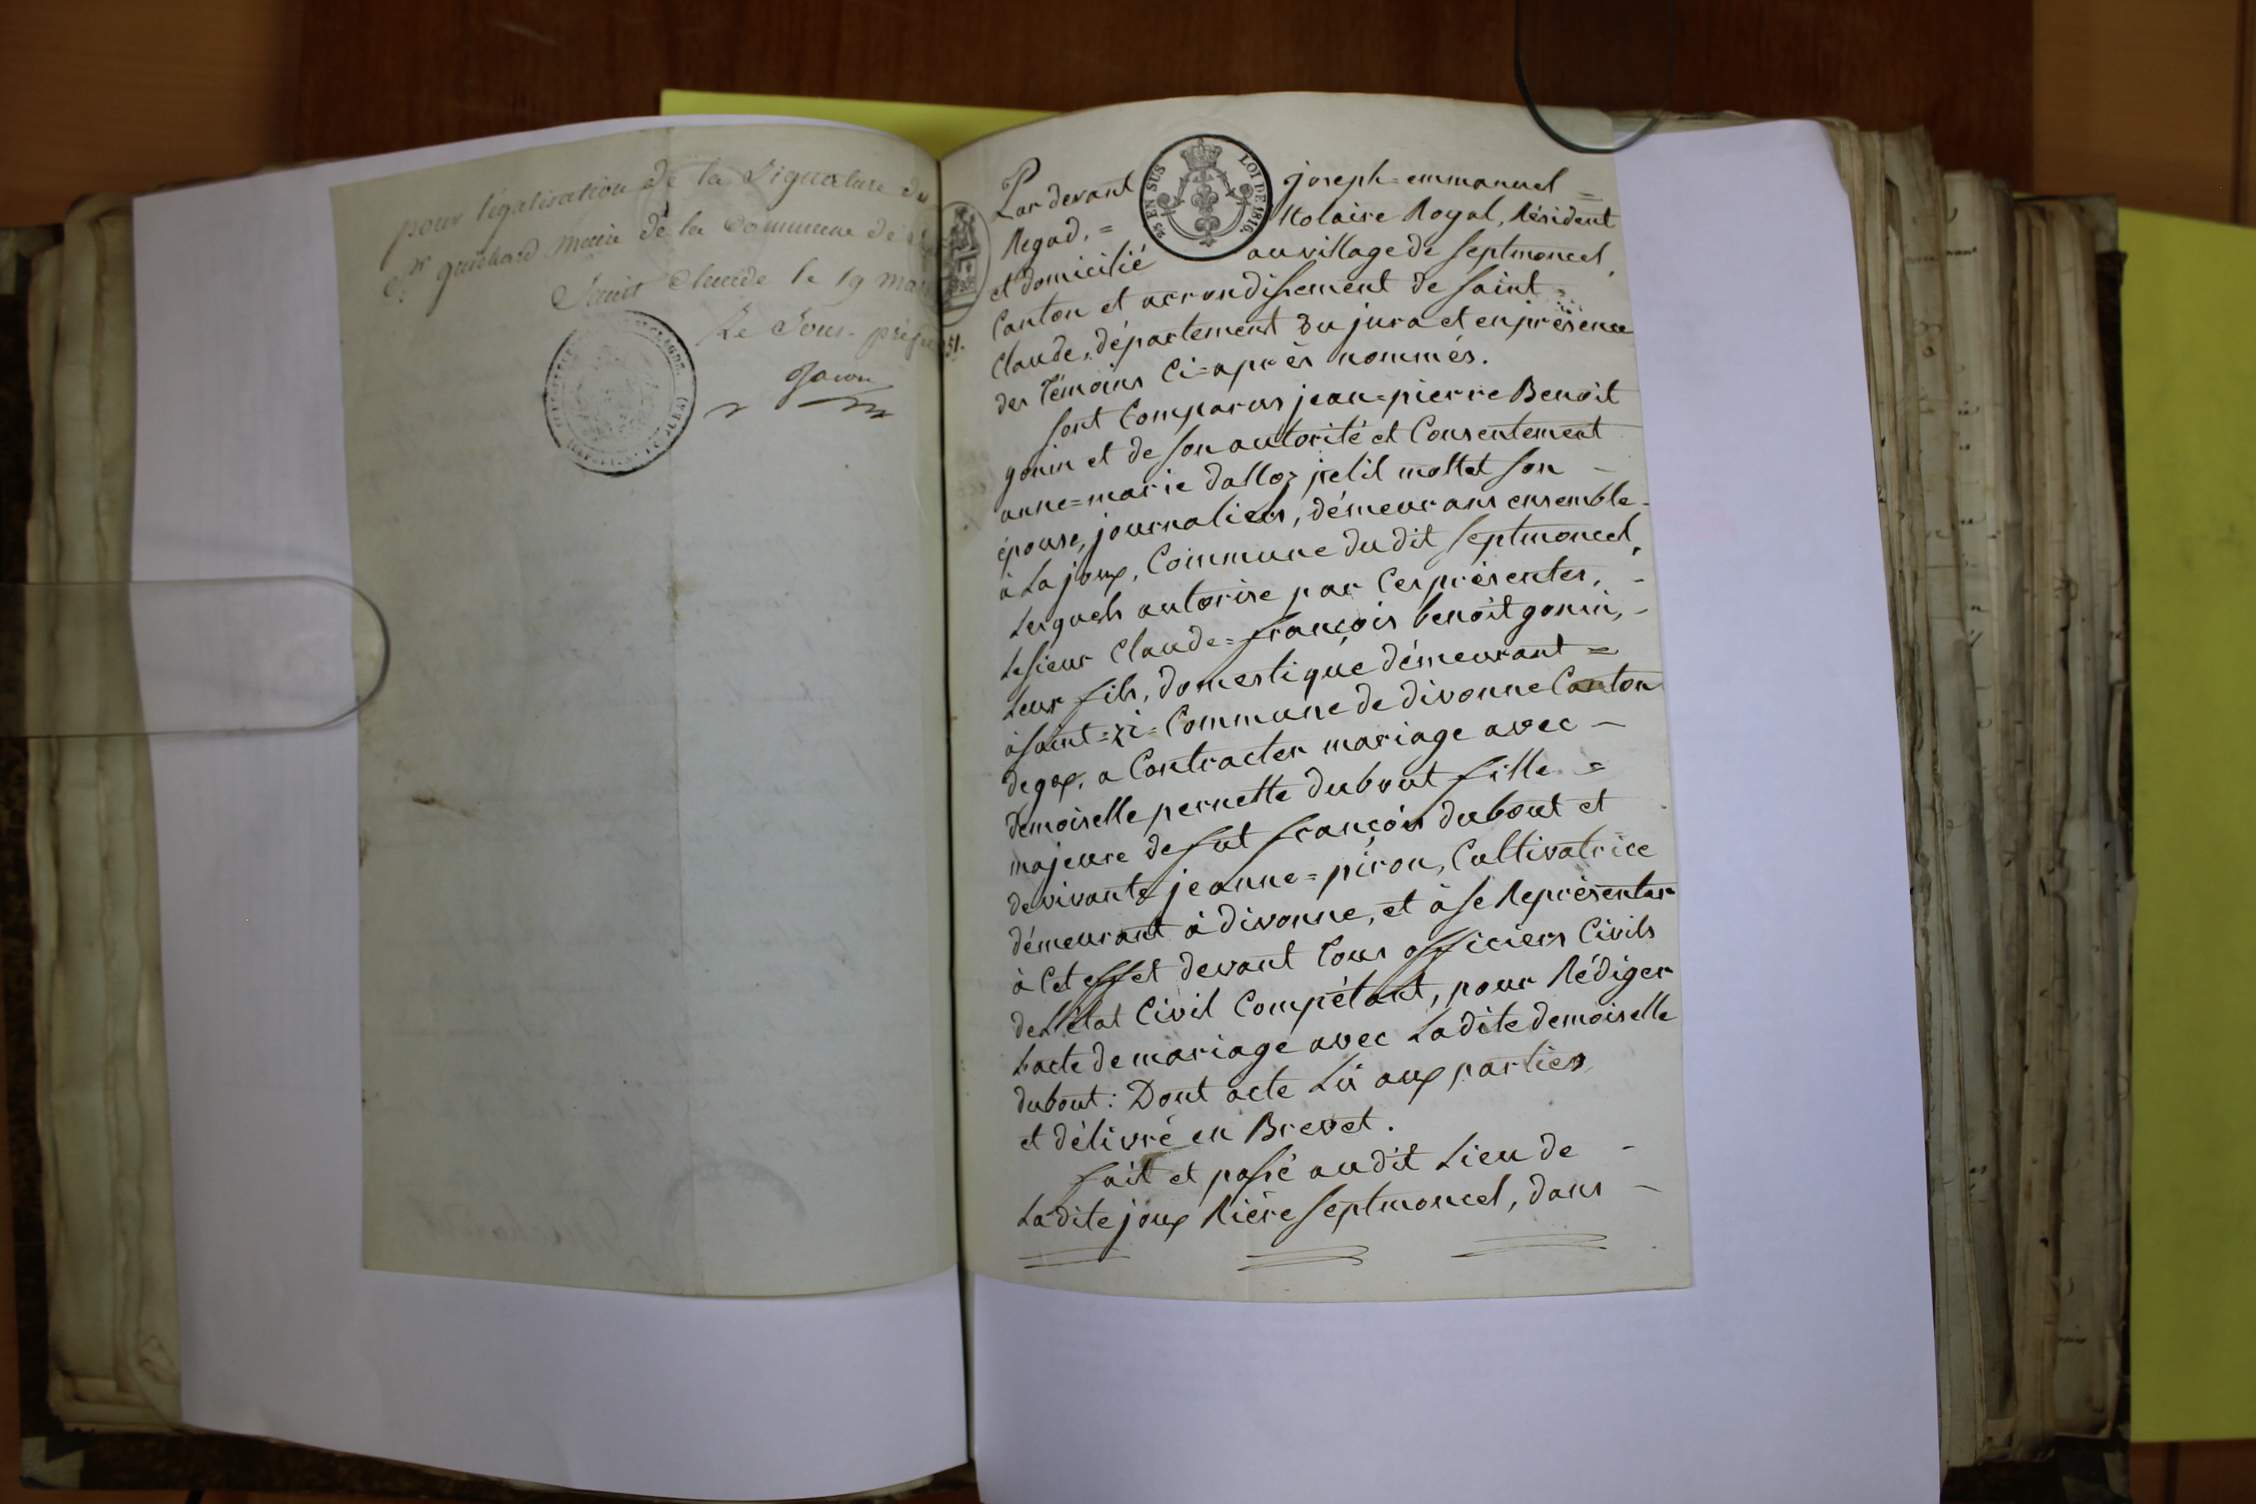 pour légalisation de la Signature du
Sr guichard maire de la Commune de
Saint Claude le 19 mars
Le Sous-préfet
Par devant joseph=emmanuel =
Regad, = Notaire Royal, Résident
et domicilié au village de septmoncel,
Canton et arrondissement de saint=
Claude, département du jura et en présence
des témoins Ci=après nommés.
sont Comparus jean=pierre Benoit
gonin et de son autorité et Consentement
anne=marie dalloz petit mottet son –
épouse, journaliers, démeurans ensemble –
à La joux, Commune du dit septmoncel,
Lesquels autorise par Ces présentes, –
Le sieur Claude=françois benoit gonin, –
Leur fils, domestique démeurant =
à saint=zi= Commune de divonne Canton
de gex, a Contracter mariage avec –
demoiselle pernette dubout fille =
majeure de fut françois dubout et
de vivante jeanne=piron, Cultivatrice
démeurant à divonne, et à se Représenter
à Cet effet devant tous officiers Civils
de L'état Civil Compétant, pour Rédiger
L'acte de mariage avec La dite demoiselle
dubout: Dont acte Lû aux parties
et délivré en Brevet.
fait et passé au dit Lieu de –
La dite joux Rière septmoncel, dans –
25 EN SUS
LOI DE 1816.